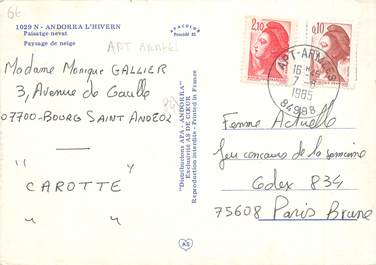 6€
1029 N - ANDORRA L'HIVERN
Paisatge nevat
Paysage de neige
APT ARMEES
APACOLOR
2,10
0,10
APT-ARMEES
16-45
7
1985
84998
Madame Monique GALLIER
3, Avenue de Gaulle
07700-BOURG SAINT ANDEOL
" "
CAROTTE
" "
"Distributions APA - ANDORRA"
Exclusivité AS DE CŒUR
Reproduction interdite - Printed in France
Femme Actuelle
Jeu concours de la semaine
Cedex 834
75608 Paris Brune
AS